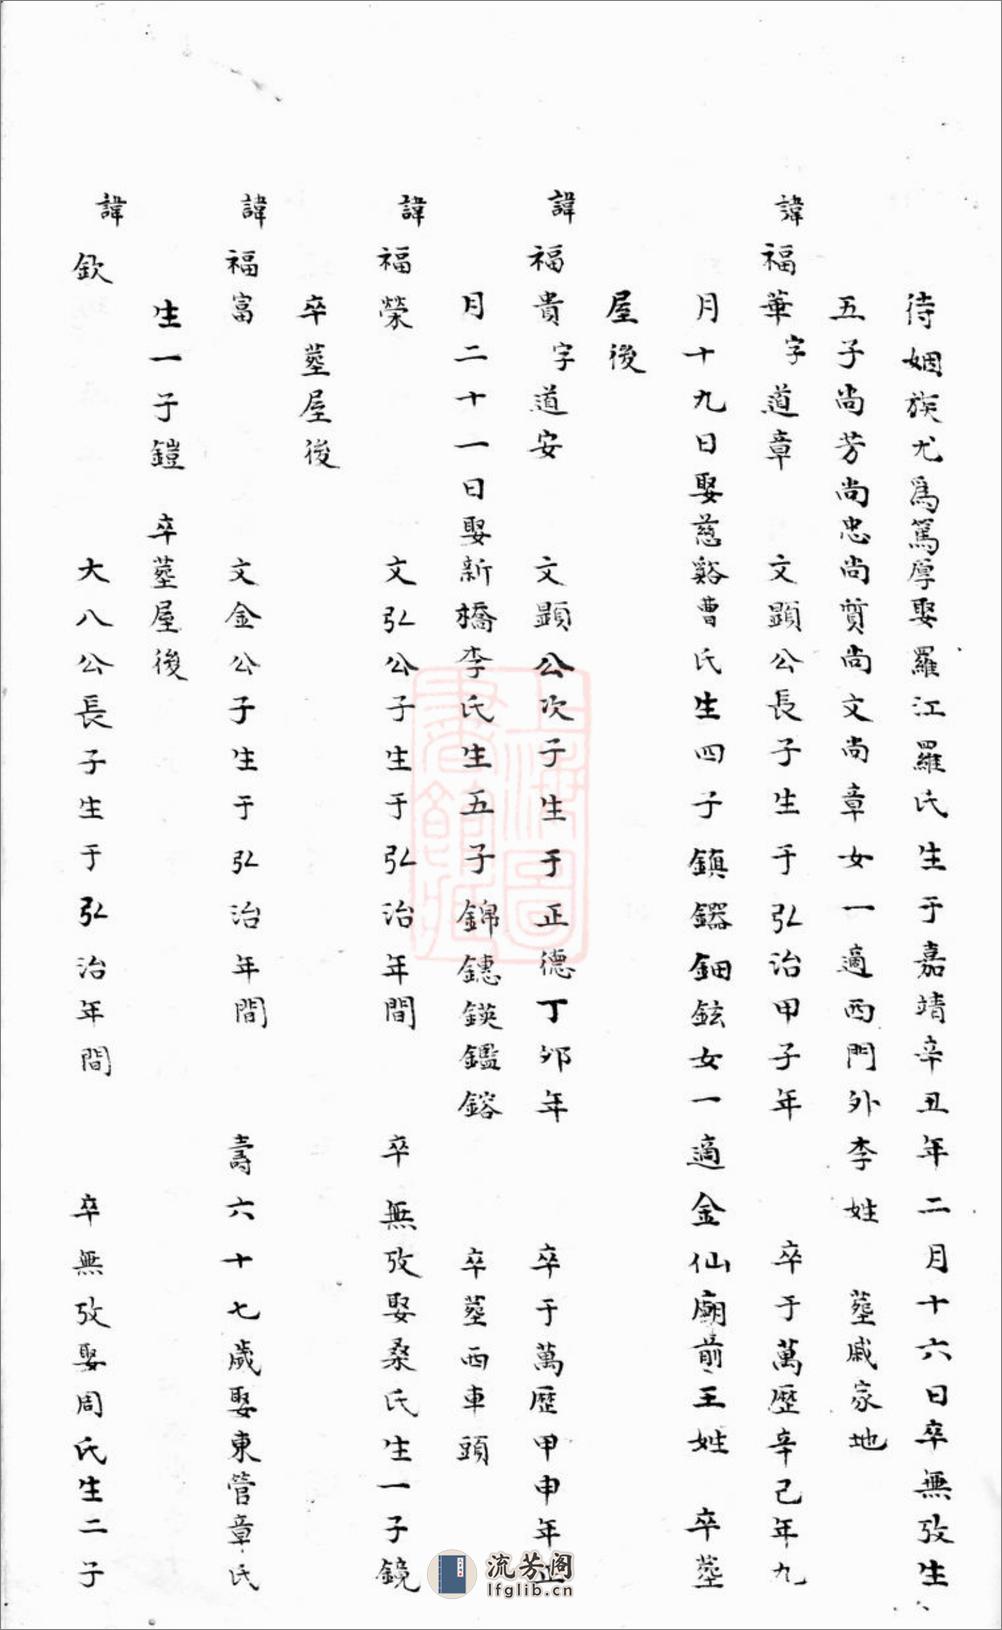 待姻族尤爲篤厚娶羅江羅氏生于嘉靖辛丑年二月十六日卒無攷生
五子尚芳尚忠尚質尚文尚章女一適西門外李姓　塟戚家地
諱福華字道章　文顕公長子生于弘治甲子年　卒于萬歷辛己年九
月十九日娶慈谿曹氏生四子鎮鐥鈿鉉女一適金仙廟前王姓　卒塟
屋後
諱福貴字道安　文顕公次子生于正德丁夘年　卒于萬歷甲申年正
月二十一日娶新橋李氏生五子錦鏸鍈鑑鎔　卒塟西車頭
諱福榮　文弘公子生于弘治年間　卒無攷娶桑氏生一子鏡
卒塟屋後
諱福富　文金公子生于弘治年間　壽六十七歲娶東管章氏
生一子鎧　卒塟屋後
諱欽　大八公長子生于弘治年間　卒無攷娶周氏生二子
上海圖書館藏
流芳阁
lfglib.cn